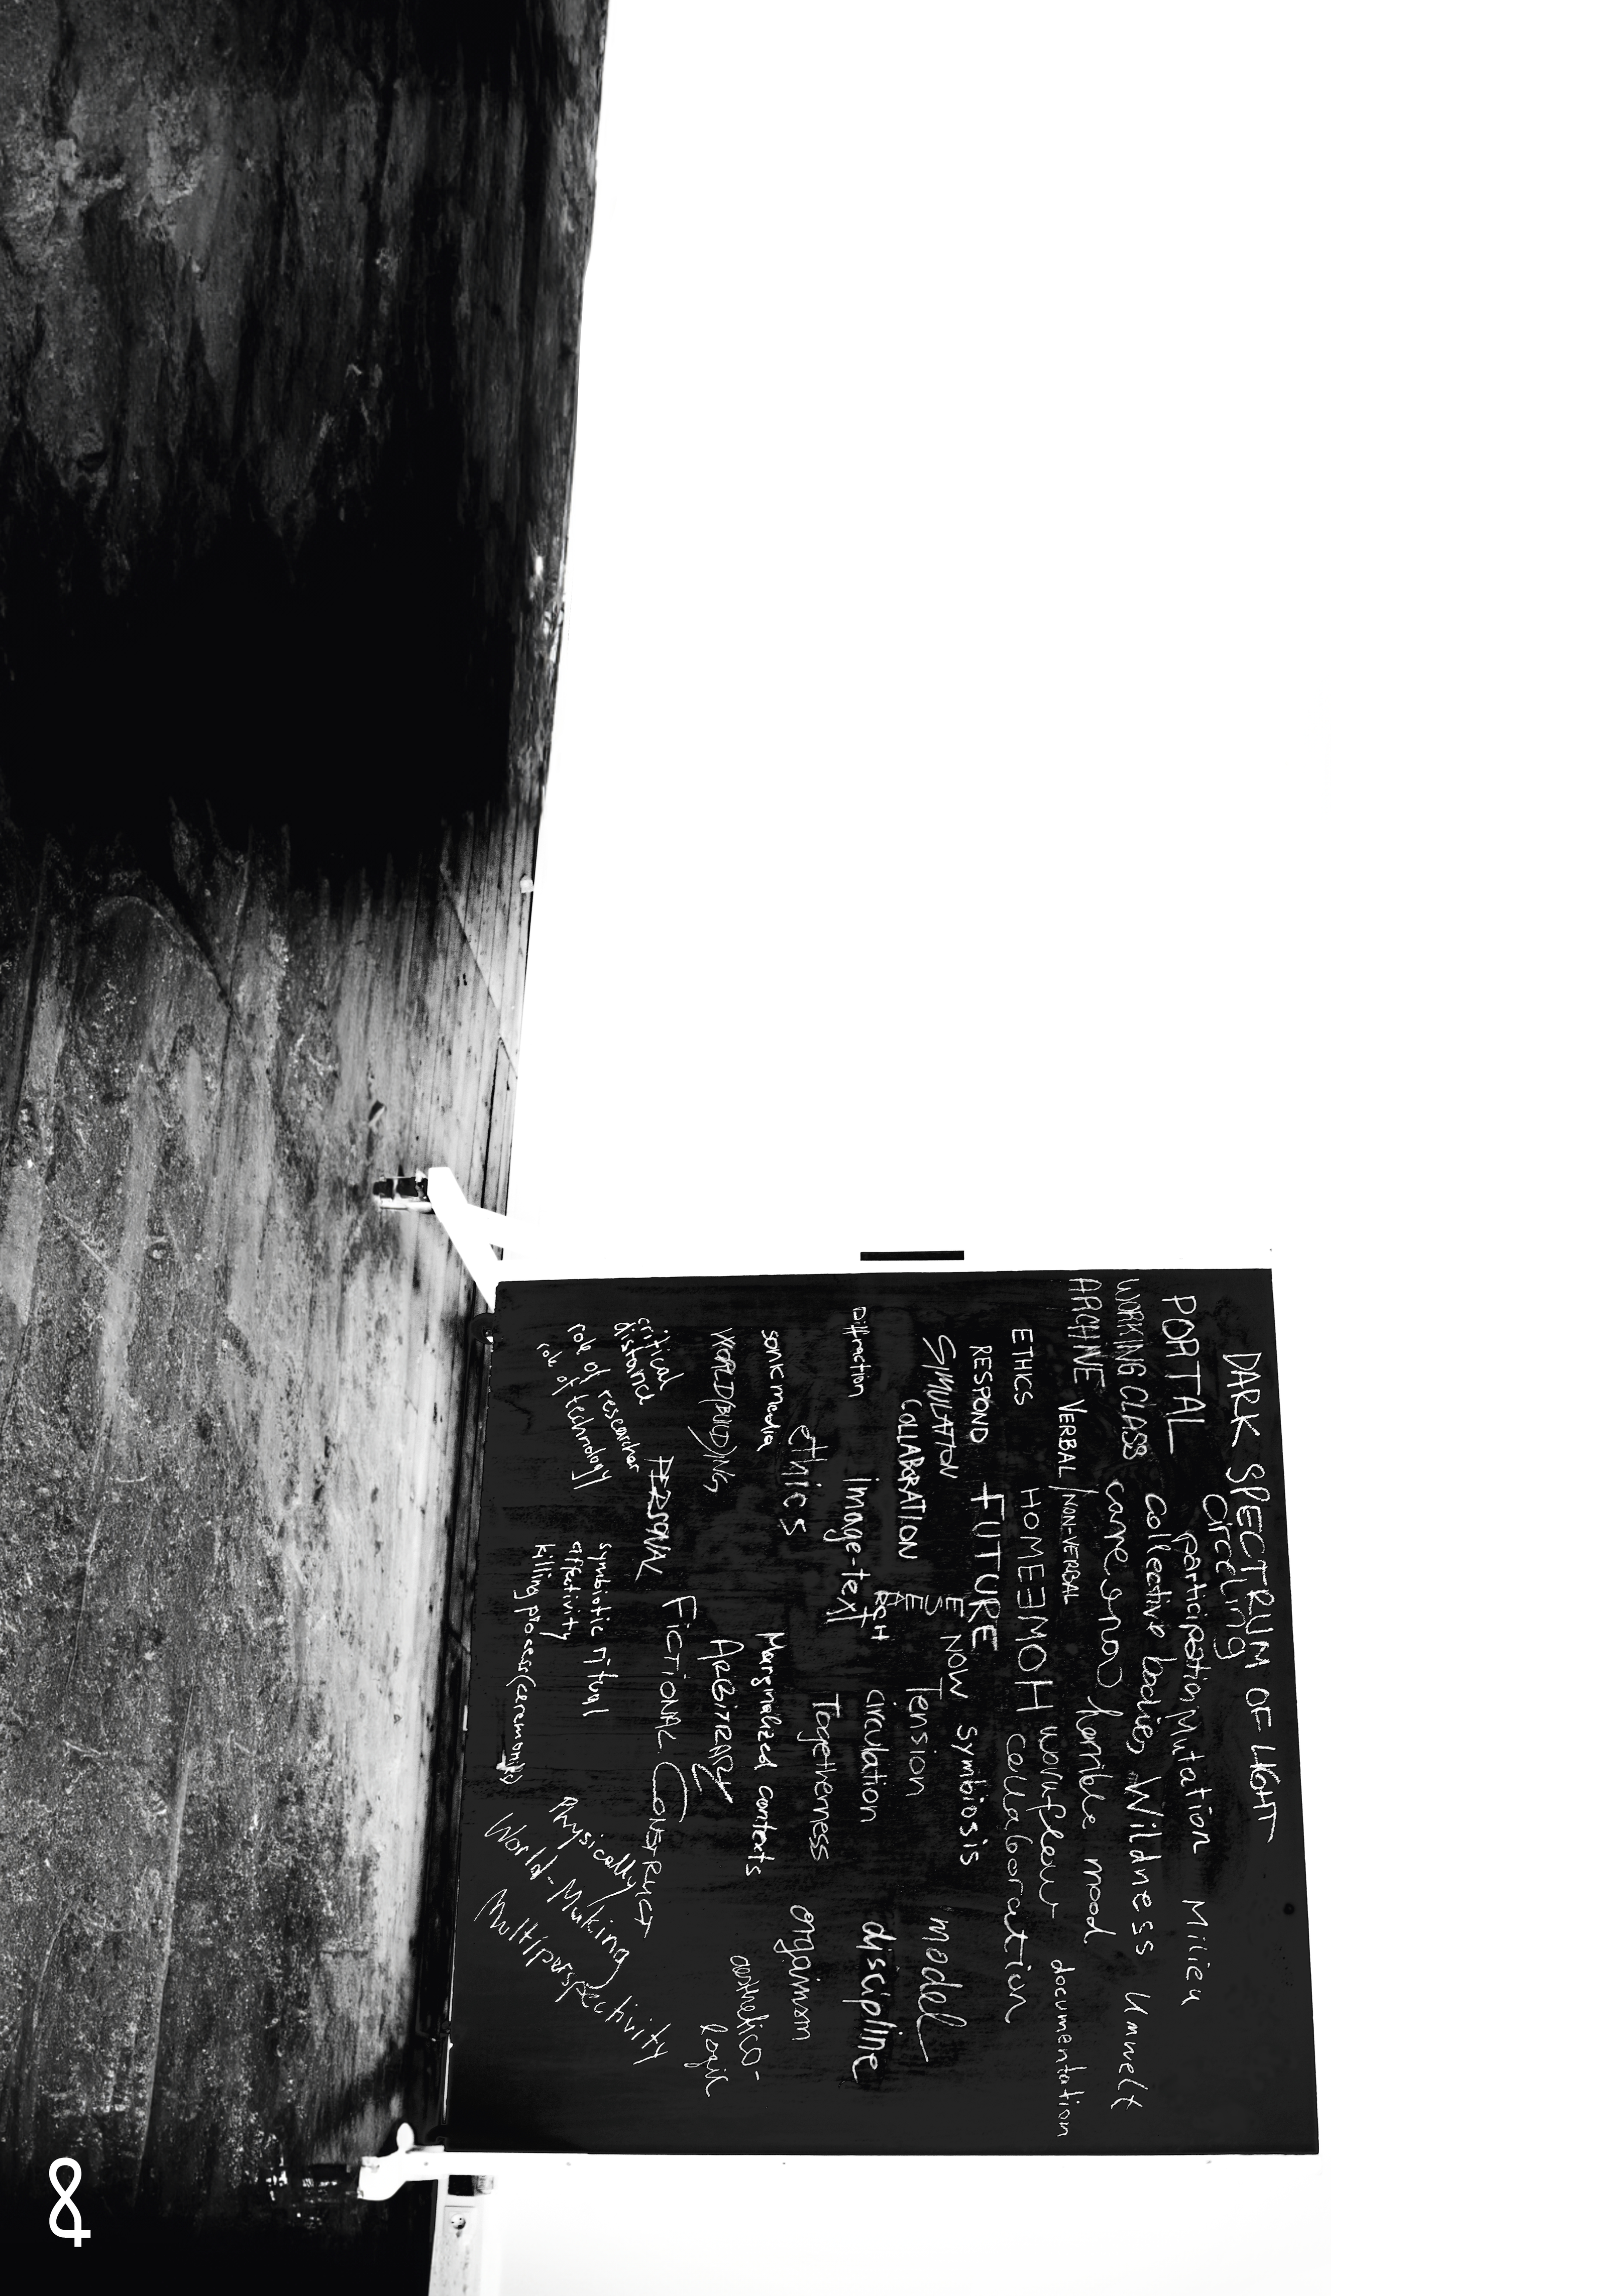 DARK SPECTRUM OF LIGHT
Circling
PORTAL participation Mutation Milieu
WORKING CLASS collective bodies Wildness Umwelt
ARCHIVE horrible mood
VERBAL / NON-VERBAL workflow documentation
ETHICS HOMEEMOH collaboration
RESPOND FUTURE
SIMULATION NOW Symbiosis model
COLLABORATION Tension
Diffraction Image-text circulation discipline
ethics Togetherness organism
sonic media Marginalized contexts
WORLD(BUILD)ING ARBITRARY aesthetico-
logic
PERSONAL FICTIONAL CONSTRUCT
critical
distance
role of researcher
role of technology
symbiotic ritual
affectivity
killing process (ceremonity)
Physically
World-Making
Multiperspectivity
&